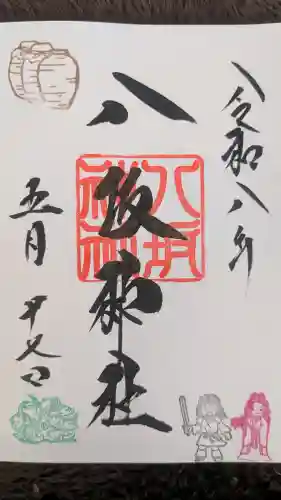 令和八年
八坂神社
八坂神社
五月廿七日